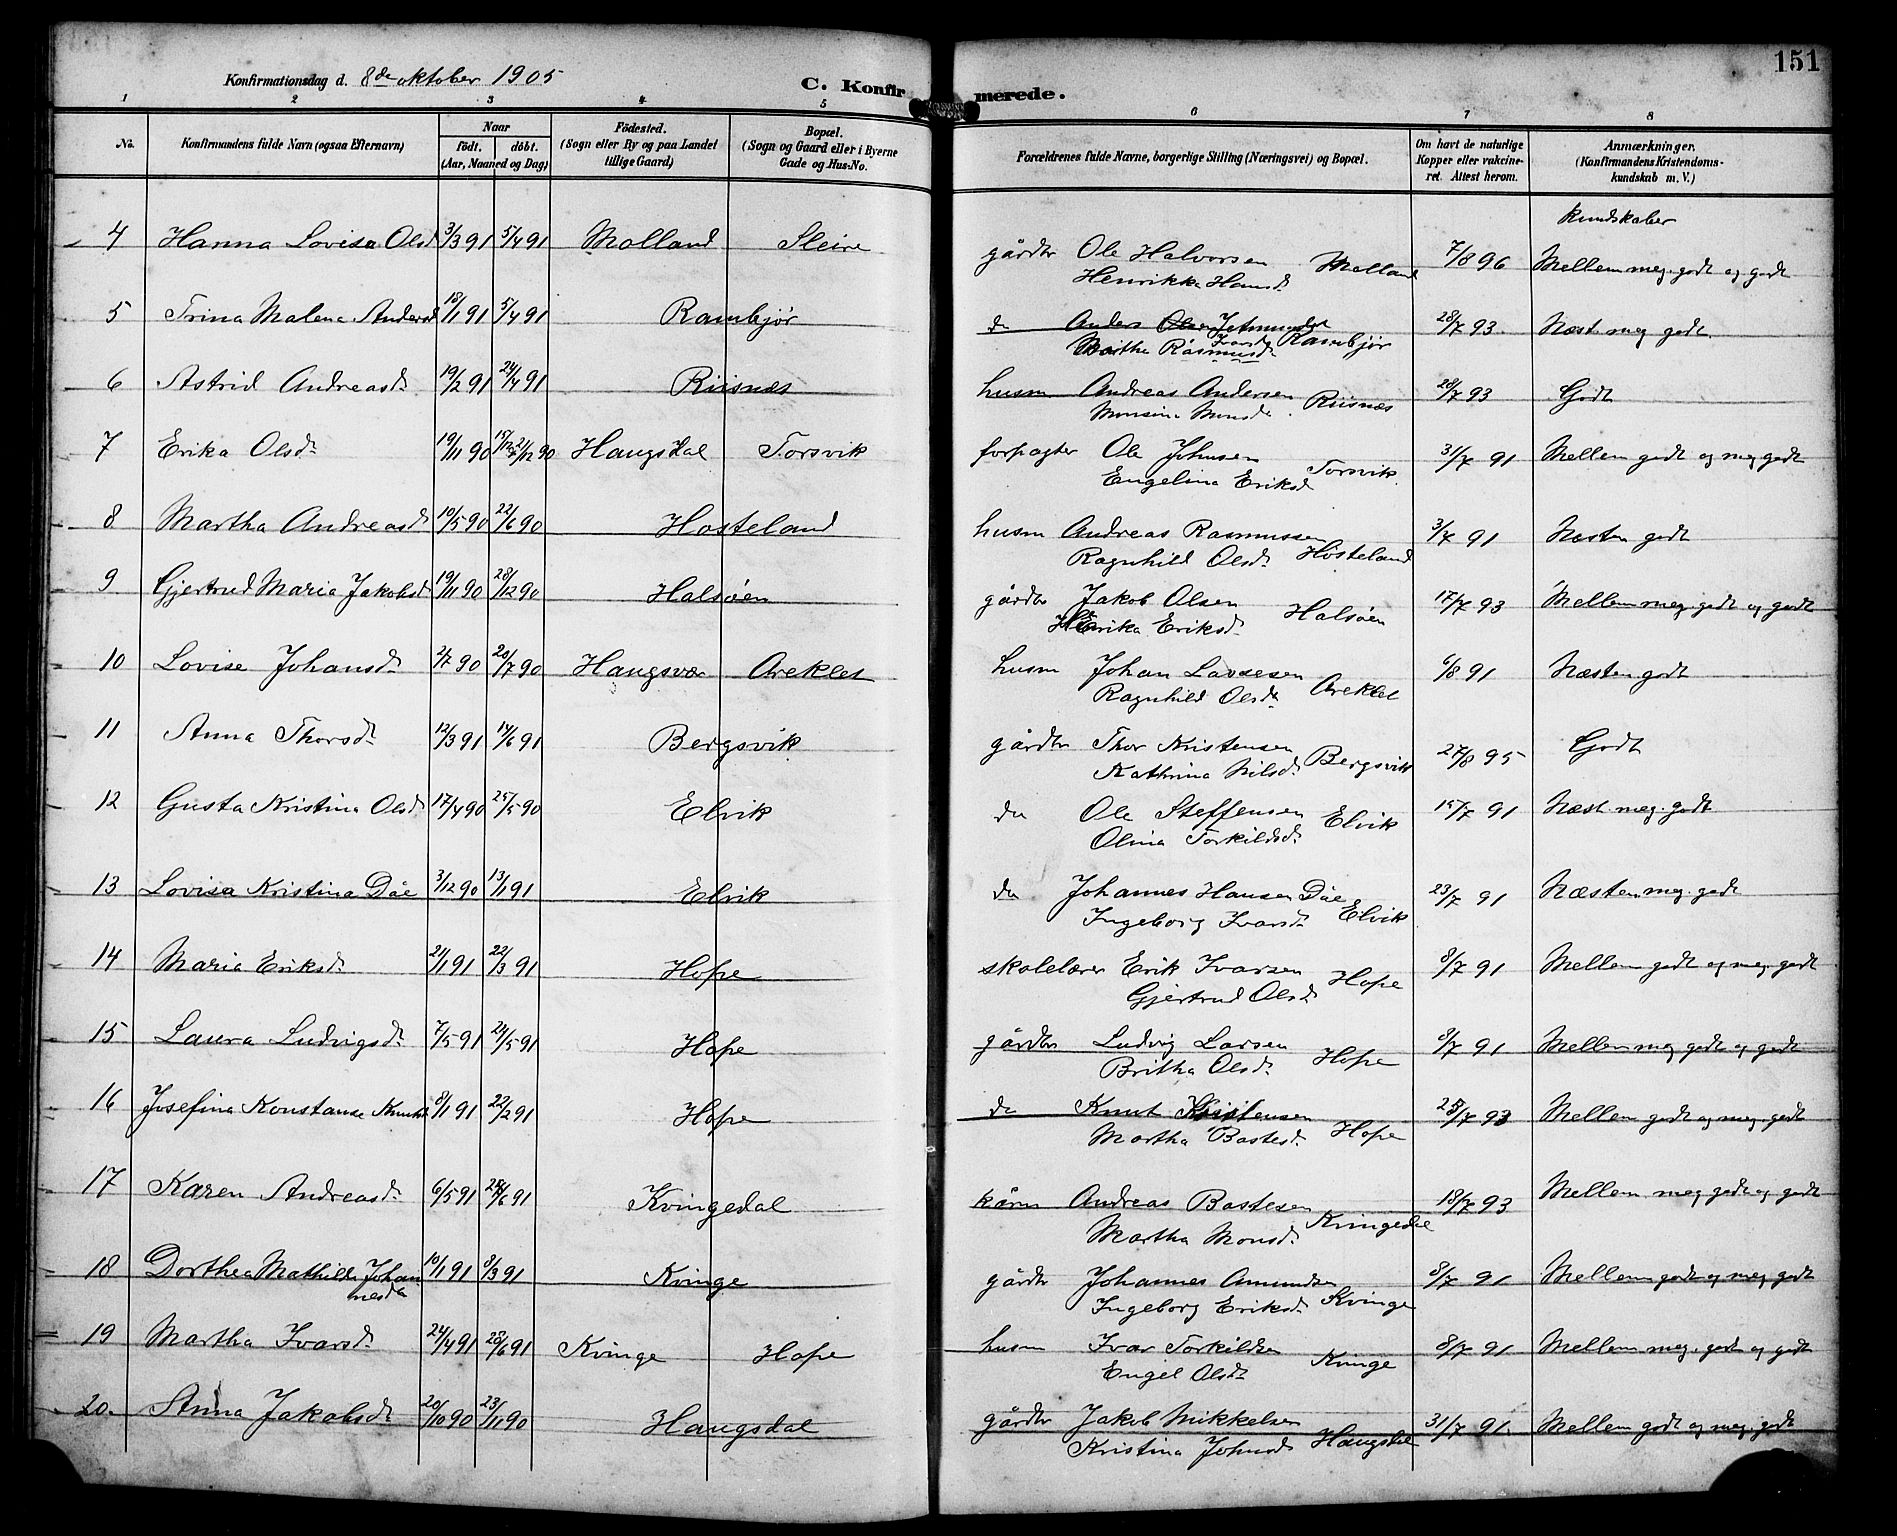 151
Konfirmationsdag d. 8de oktober 1905
C. Konfirmerede.
1 2 3 4 5 6 7 8
No. Konfirmandens fulde Navn (ogsaa Efternavn) Naar födt. döbt. (Aar, Maaned og Dag) Födested. (Sogn eller By og paa Landet tillige Gaard) Bopæl. (Sogn og Gaard eller i Byerne Gade og Hus-No. Forældrenes fulde Navne, borgerlige Stilling (Næringsvei) og Bopæl. Om havt de naturlige Kopper eller vakcineret. Attest herom. Anmærkninger. (Konfirmandens Kristendomskundskab m. V.)
Kundskaber
4 Hanna Lovisa Olsd 3/3 91 5/4 91 Molland Sleire gårdbr Ole Halvorsen Molland 7/8 96 Mellem meg. godt og godt
Henrikka Hansd.
5 Trina Malena Andersd 18/1 91 5/4 91 Rambjör do Anders 28/7 93. Næst. meg godt.
Martha Rasmusd. Rambjör
6 Astrid Andreasd. 19/2 91 24/4 91 Riisnæs husm Andreas Andersen Riisnæs 28/7 93 Godt
Monsina Monsd.
7 Erika Olsd. 19/11 90 21/12 90 Haugsdal Torsvik forpagter Ole Johnsen Torsvik. 31/7 91 Mellem godt og meg godt
Engelina Eriksd
8 Martha Andreasd. 10/5 90 22/6 90 Hosteland husm Andreas Rasmussen Hosteland 3/7 91 Næsten godt
Ragnhild Olsd.
9 Gjertrud Maria Jakobsd 19/11 90 28/12 90 Halsöen gårdbr Jakob Olsen Halsöen 17/7 93 Mellem meg. godt og godt
Erika Eriksd.
10 Lovise Johansd. 2/7 90 20/7 90 Haugsvær Areklet husm Johan Lassesen Areklet 6/8 91 Næsten godt
Ragnhild Olsd.
11 Anna Thorsd. 12/3 91 14/6 91 Bergsvik gårdbr Thor Kristensen Bergsvik 27/8 95 Godt
Kathrina Nilsd.
12 Gusta Kristina Olsd 17/4 90 25/5 90 Elvik do Ole Steffensen Elvik 15/7 91 Næst. meg. godt
Olina Torkildsd.
13 Lovisa Kristina Däe 3/12 90 13/1 91 Elvik do Johannes Hansen Däe, Elvik 23/7 91 Næsten meg. godt
Ingeborg Ivarsd.
14 Maria Eriksd. 21/1 91 22/3 91 Hope skolelærer Erik Ivarsen Hope 8/7 91 Mellem godt og meg. godt
Gjertrud Olsd.
15 Laura Ludvigsd. 7/5 91 24/5 91 Hope gårdbr Ludvig Larsen Hope 8/7 91 Mellem meg godt og godt
Britha Olsd.
16 Josefina Konstanse Knutsd 8/1 91 22/2 91 Hope do Knut Kristensen Hope 25/7 93 Mellem godt og meg. godt
Martha Bastesd.
17 Karen Andreasd. 6/5 91 28/6 91 Kvingedal kårm Andreas Bastesen Kvingedal 18/7 93 Mellem meg godt og godt
Martha Monsd.
18 Dorthea Mathilde Johannesda 10/1 91 8/3 91 Kvinge gårdbr Johannes Amundsen Kvinge 8/7 91 Mellem godt og meg godt
Ingeborg Eriksd.
19 Martha Ivarsd. 24/4 91 28/6 91 Kvinge Hope husm Ivar Torkildsen Kvinge 8/7 91 Mellem meg. godt og godt
Engel Olsdt
20. Anna Jakobsd. 20/10 90 23/11 90 Haugsdal gårdbr Jakob Mikkelsen Haugsdal 31/7 91. Mellem godt og meg. godt
Kristina Johnsd.